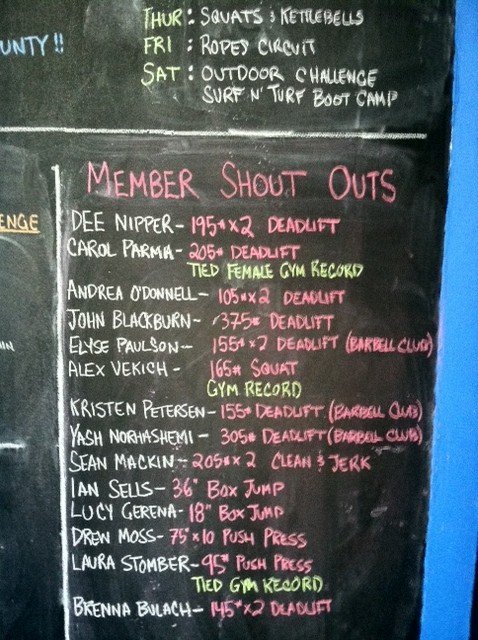 THUR: SQUATS & KETTLEBELLS
UNTY!! FRI : ROPES CIRCUIT
SAT : OUTDOOR CHALLENGE
SURF N' TURF BOOT CAMP
MEMBER SHOUT OUTS
ENGE
DEE NIPPER- 195# x2 DEADLIFT
CAROL PARMA- 205# DEADLIFT
TIED FEMALE GYM RECORD
ANDREA O'DONNELL- 105# x 2 DEADLIFT
JOHN BLACKBURN- 375# DEADLIFT
ELYSE PAULSON- 155# x2 DEADLIFT (BARBELL CLUB)
ALEX VEKICH- 165# SQUAT
GYM RECORD
KRISTEN PETERSEN- 155# DEADLIFT (BARBELL CLUB)
YASH NORHASHEMI- 305# DEADLIFT (BARBELL CLUB)
SEAN MACKIN- 205# x 2 CLEAN & JERK
IAN SELLS- 36" BOX JUMP
LUCY GERENA- 18" BOX JUMP
DREW MOSS- 75# x 10 PUSH PRESS
LAURA STOMBER- 95# PUSH PRESS
TIED GYM RECORD
BRENNA BULACH- 145# x 2 DEADLIFT